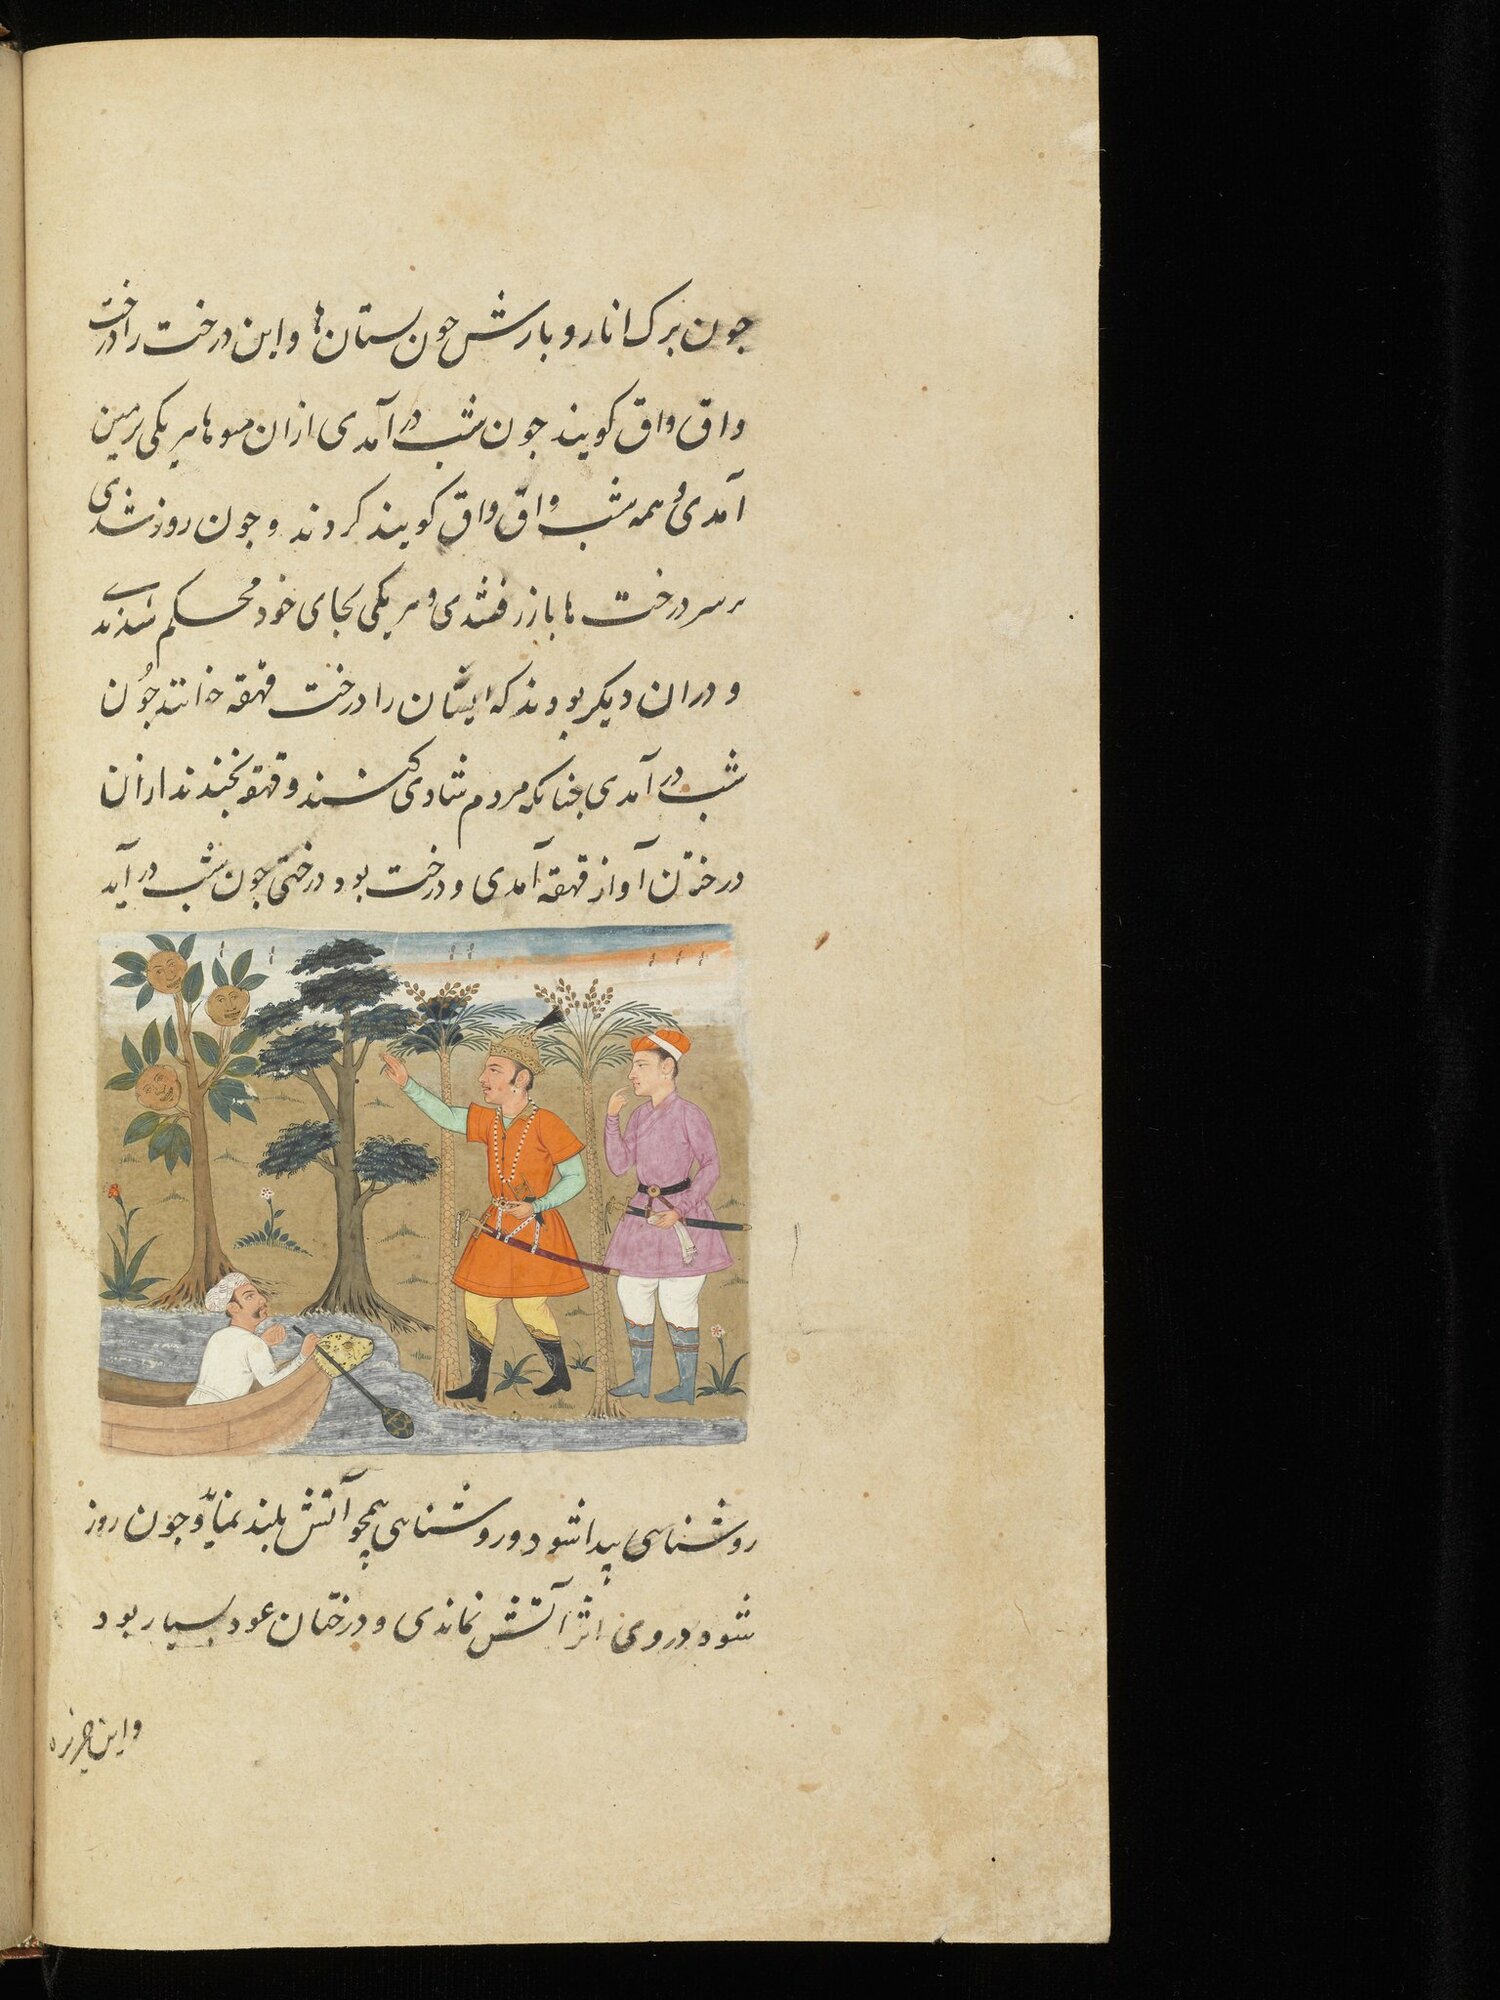 جون برک انار و بارش جون بستان‌ها و این درخت را درخت
واق واق کویند جون شب در آمدی ازان میوها هر یکی بر زمین
آمدی و همه شب واق واق کویند کردند و جون روز شدی
بر سر درخت ها باز رفتندی و هر یکی بجای خود محکم شدندے
و دران دیکر بودند که ایشان را درخت قهقه خوانند جُون
شب در آمدی جنانکه مردم شادی کنند و قهقه بخندند ازان
درختن آواز قهقه آمدی و درخت بود درختی جون شب در آید
روشنایی پیدا شود و روشنایی همچو آتش بلند نماید و جون روز
شود در وی اثر آتش نماندی و درختان عود بسیار بود
و این جزیره